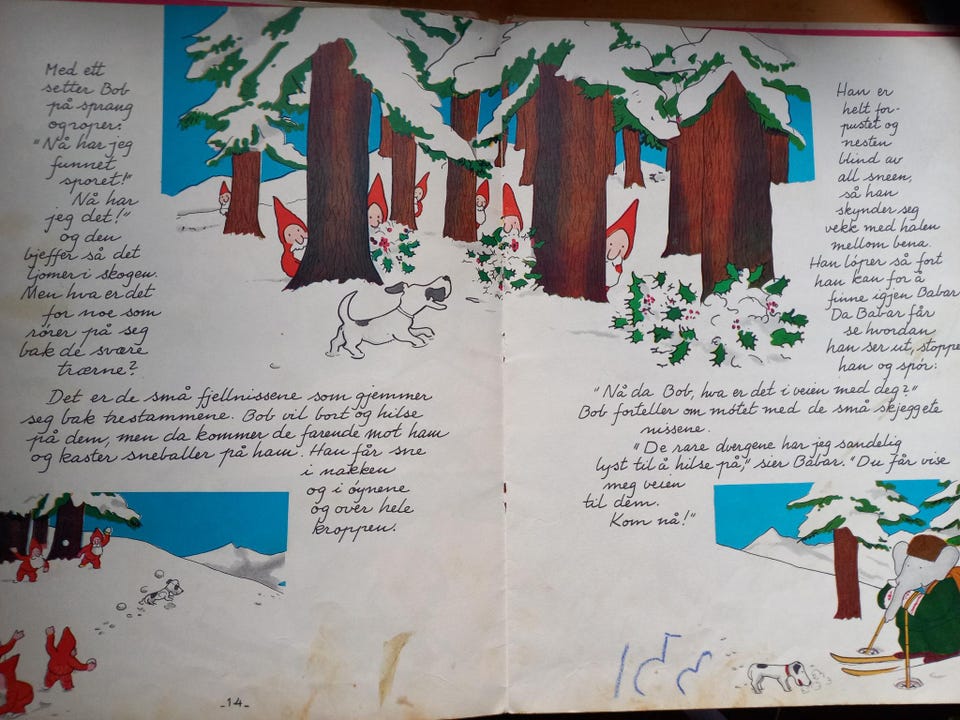 Med ett
setter Bob
på sprang
og roper:
"Nå har jeg
funnet
sporet!"
Nå har
jeg det!"
og den
bjeffer så det
ljomer i skogen.
Men hva er det
for noe som
rører på seg
bak de svære
trærne?
Det er de små fjellnissene som gjemmer
seg bak trestammene. Bob vil bort og hilse
på dem, men da kommer de farende mot ham
og kaster sneballer på ham. Han får sne
i nakken
og i óynene
og over hele
kroppen.
-14-
Han er
helt for-
pustet og
nesten
blind av
all sneen,
så han
skynder seg
vekk med halen
mellom bena.
Han lóper så fort
han kan for å
finne igjen Babar
Da Babar får
se hvordan
han ser ut, stoppe
han og spór:
"Nå da Bob, hva er det i veien med deg?"
Bob forteller om mótet med de små skjeggete
nissene.
"De rare dvergene har jeg sandelig
lyst til å hilse på," sier Babar. "Du får vise
meg veien
til dem.
Kom nå!"